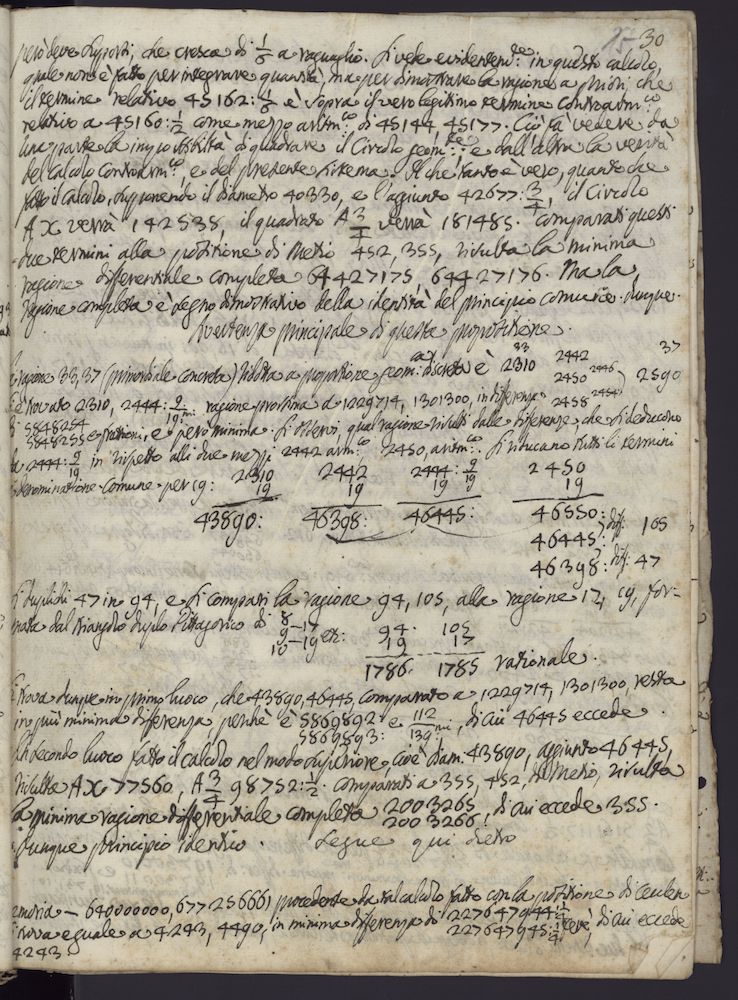 30
però deve supporsi, che cresca di 1/6 a raguaglio. Si vede evidentem:te in questo calcolo,
quale non è fatto per integrare quantità, ma per dimostrare la ragione a priori, che
il termine relativo 45162:1/6 è sopra il vero legitimo termine controarm:co
relativo a 45160:1/2 come mezzo aritm:co di 45144 45177. Ciò fà vedere da
una parte la impossibilità di quadrare il Circolo geom:te, e dall'altra la verità
del calcolo controarm:co, e del presente sistema. Il che tanto è vero, quanto che
fatto il calcolo, supponendo il diametro 40330, e l'aggiunto 42677:3/4, il Circolo
A X verrà 142538, il quadrato A 3/4 verrà 181485. Comparati questi
due termini alla positione di Metio 452, 355, risulta la minima
ragione differentiale completa 64427175 64427176. Ma la
ragione completa è segno dimostrativo della identità del principio comune. Dunque.
Avertenza principale di questa propositione.
ragione 33, 37 (primordiale concreta) ridotta a proportione geom:ca discreta è 33 2310 2442 2450 2446 2458 2454 37 2590
è trovato 2310, 2444:9/19:mi ragione prossima a 1229714, 1301300, in differenza
di 5848254 5848255 e frationi, e però minima. Si osservi qual ragione risulti dalle differenze, che si deducono
da 2444:9/19 in rispetto alli due mezzi 2442 arm:co 2450, aritm:co. Si riducano tutti li termini
a denominatione comune per 19: 2310 2442 2444:9/19 2450
19 19 19 19
43890: 46398: 46445: 46550: diff: 105
46445:
46398: diff: 47
Si duplichi 47 in 94, e si compari la ragione 94, 105, alla ragione 17, 19, for-
mata dal triangolo duplo Pittagorico di 8
9–17
10–19 etc: 94. 105
19 17
1786. 1785 rationale.
Si trova dunque in primo luoco, che 43890, 46445, comparato a 1229714, 1301300, resta
in più minima differenza, perche è 5869892 e 112/139:mi, di cui 46445 eccede.
5869893:
In secondo luoco fatto il calcolo nel modo superiore, cioè diam: 43890, aggiunto 46445,
risulta A X 77560, A 3/4 98752:1/2. Comparati a 355, 452, di Metio, risulta
la minima ragione differentiale completa 2003265 2003266, di cui eccede 355.
Dunque principio identico. Segue qui dietro
memoria – 640000000, 677256661 procedente da tal calcolo fatto con la positione di Ceulen
si trova eguale a 4243, 4490, in minima differenza di 227647944:1/4 227647945:1/4 &c, di cui eccede
4243.